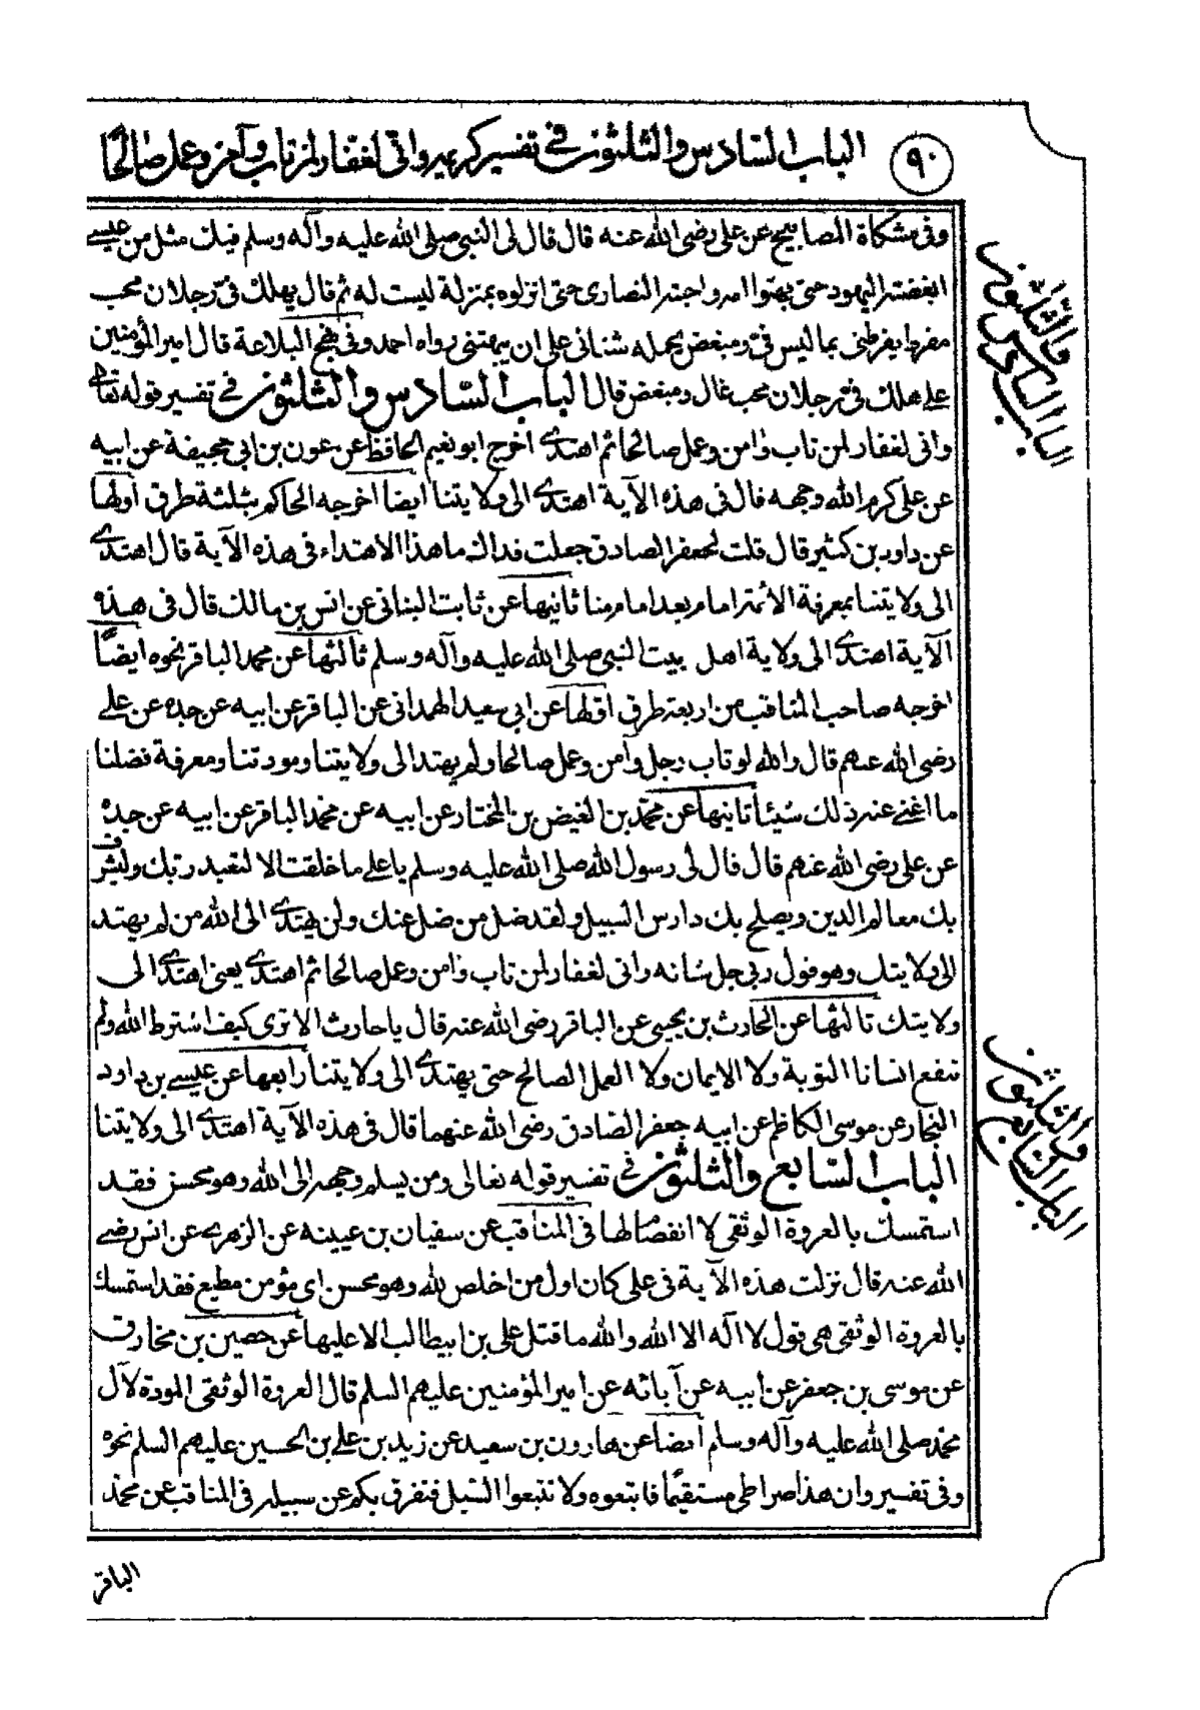 ٩٠
الباب السادس والثلثون في تفسير كريمة واني لغفار لمن تاب وآمن وعمل صالحا
وفى مشكاة المصابيح عن على رضى الله عنه قال قال لى النبي صلى الله عليه وآله وسلم فيك مثل من عيسے
ابغضته اليهود حتى بهتوا امه واحبته النصارى حتى انزلوه بمنزلة ليست له ثم قال يهلك فىّ رجلان محب
مفرط يفرطنى بما ليس فىّ ومبغض يحمله شنانى على ان يبهتنى رواه احمد وفى نهج البلاغة قال امير المؤمنين
على هلك فىّ رجلان محب غال ومبغض قال الباب السادس والثلثون فے تفسير قوله تعالى
وانى لغفار لمن تاب وآمن وعمل صالحا ثم اهتدے اخرج ابو نعيم الحافظ عن عون بن ابى جحيفة عن ابيه
عن على كرم الله وجهه قال فى هذه الآية اهتدے الى ولايتنا ايضا اخرجه الحاكم بثلثة طرق اولها
عن داود بن كثير قال قلت لجعفر الصادق جعلت فداك ما هذا الاهتداء فى هذه الآية قال اهتدے
الى ولايتنا بمعرفة الائمة امام بعد امام منا ثانيها عن ثابت البنانى عن انس بن مالك قال فى هذه
الآية اهتدے الى ولاية اهل بيت النبي صلى الله عليه وآله وسلم ثالثها عن محمد الباقر نحوه ايضًا
اخرجه صاحب المناقب من اربعة طرق اولها عن ابى سعيد الهمدانى عن الباقر عن ابيه عن جده عن علے
رضى الله عنهم قال والله لو تاب رجل وآمن وعمل صالحا ولم يهتد الى ولايتنا ومودتنا ومعرفة فضلنا
ما اغنے عنه ذلك شيئا ثانيها عن محمد بن الفيض بن المختار عن ابيه عن محمد الباقر عن ابيه عن جده
عن على رضى الله عنهم قال قال لى رسول الله صلى الله عليه وسلم يا علے ما خلقت الا لتعبد ربك وليشرف
بك معالم الدين ويصلح بك دارس السبيل ولقد ضل من ضل عنك ولن يهتدے الى الله من لم يهتد
الى ولايتك وهو قول ربى جل شانه وانى لغفار لمن تاب وآمن وعمل صالحا ثم اهتدے يعنى اهتدے الى
ولايتك ثالثها عن الحارث بن يحيى عن الباقر رضى الله عنه قال يا حارث الا ترى كيف اشترط الله ولم
تنفع انسانا التوبة ولا الايمان ولا العمل الصالح حتى يهتدے الى ولايتنا رابعها عن عيسے بن داود
النجار عن موسى الكاظم عن ابيه جعفر الصادق رضى الله عنهما قال فى هذه الآية اهتدے الى ولايتنا
الباب السابع والثلثون فے تفسير قوله تعالى ومن يسلم وجهه الى الله وهو محسن فقد
استمسك بالعروة الوثقى لا انفصام لها فى المناقب عن سفيان بن عيينه عن الزهرے عن انس رضے
الله عنه قال نزلت هذه الآية فى على كان اول من اخلص لله وهو محسن اى مؤمن مطيع فقد استمسك
بالعروة الوثقى هى قول لا اله الا الله والله ما قتل على بن ابيطالب الا عليها عن حصين بن مخارق
عن موسى بن جعفر عن ابيه عن آبائه عن امير المؤمنين عليهم السلم قال العروة الوثقى المودة لآل
محمد صلى الله عليه وآله وسلم ايضا عن هارون بن سعيد عن زيد بن على بن الحسين عليهم السلم نحوه
وفى تفسير وان هذا صراطى مستقيمًا فاتبعوه ولا تتبعوا السبل فتفرق بكم عن سبيله فى المناقب عن محمد
الباب السادس
والثلثون
الباب السابع
والثلثون
الباقر